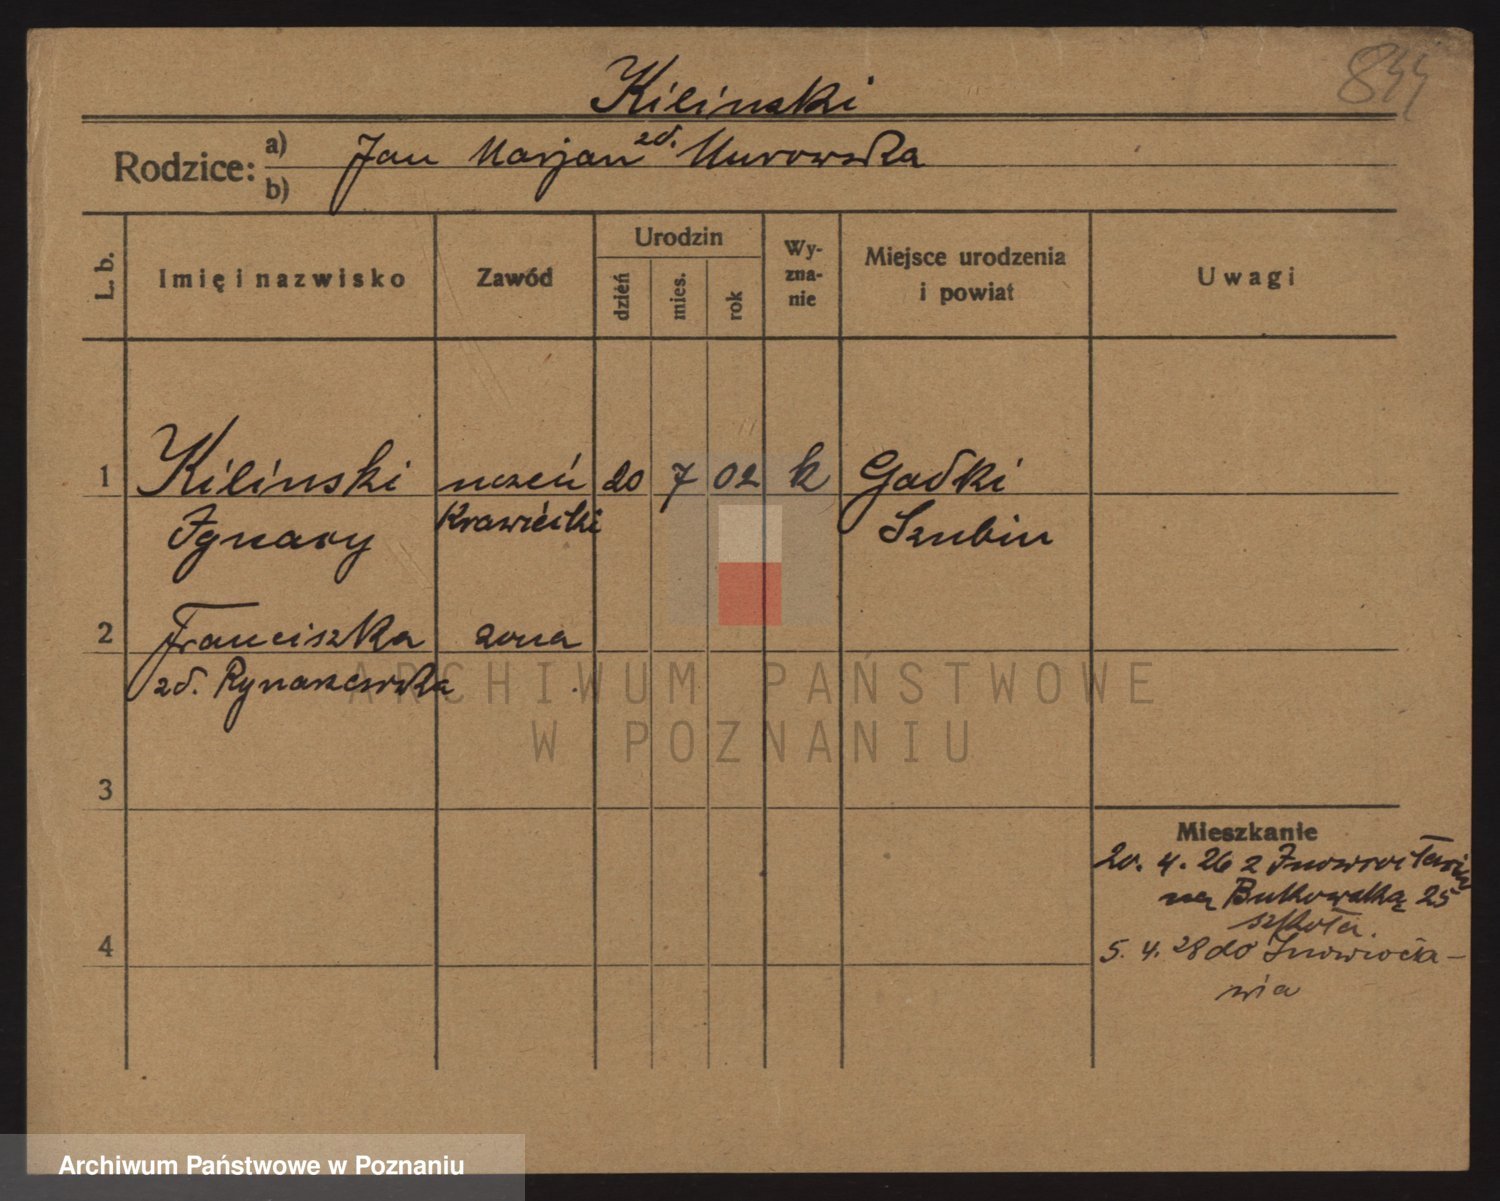 844
Kilinski
Rodzice: a) Jan Marjan zd. Murowska
b)
L. b. Imię i nazwisko Zawód Urodzin dzień mies. rok Wyznanie Miejsce urodzenia i powiat Uwagi
1 Kilinski uczeń 20 7 02 k Gadki
Ignacy Krawiecki Szubin
2 Franciszka zona
zd. Rynarzewska
ARCHIWUM PAŃSTWOWE
W POZNANIU
3
Mieszkanie
20. 4. 26 z Inowrocławia
na Bukowską 25
szkoła.
4
5. 4. 28 do Inowrocła-
wia
Archiwum Państwowe w Poznaniu